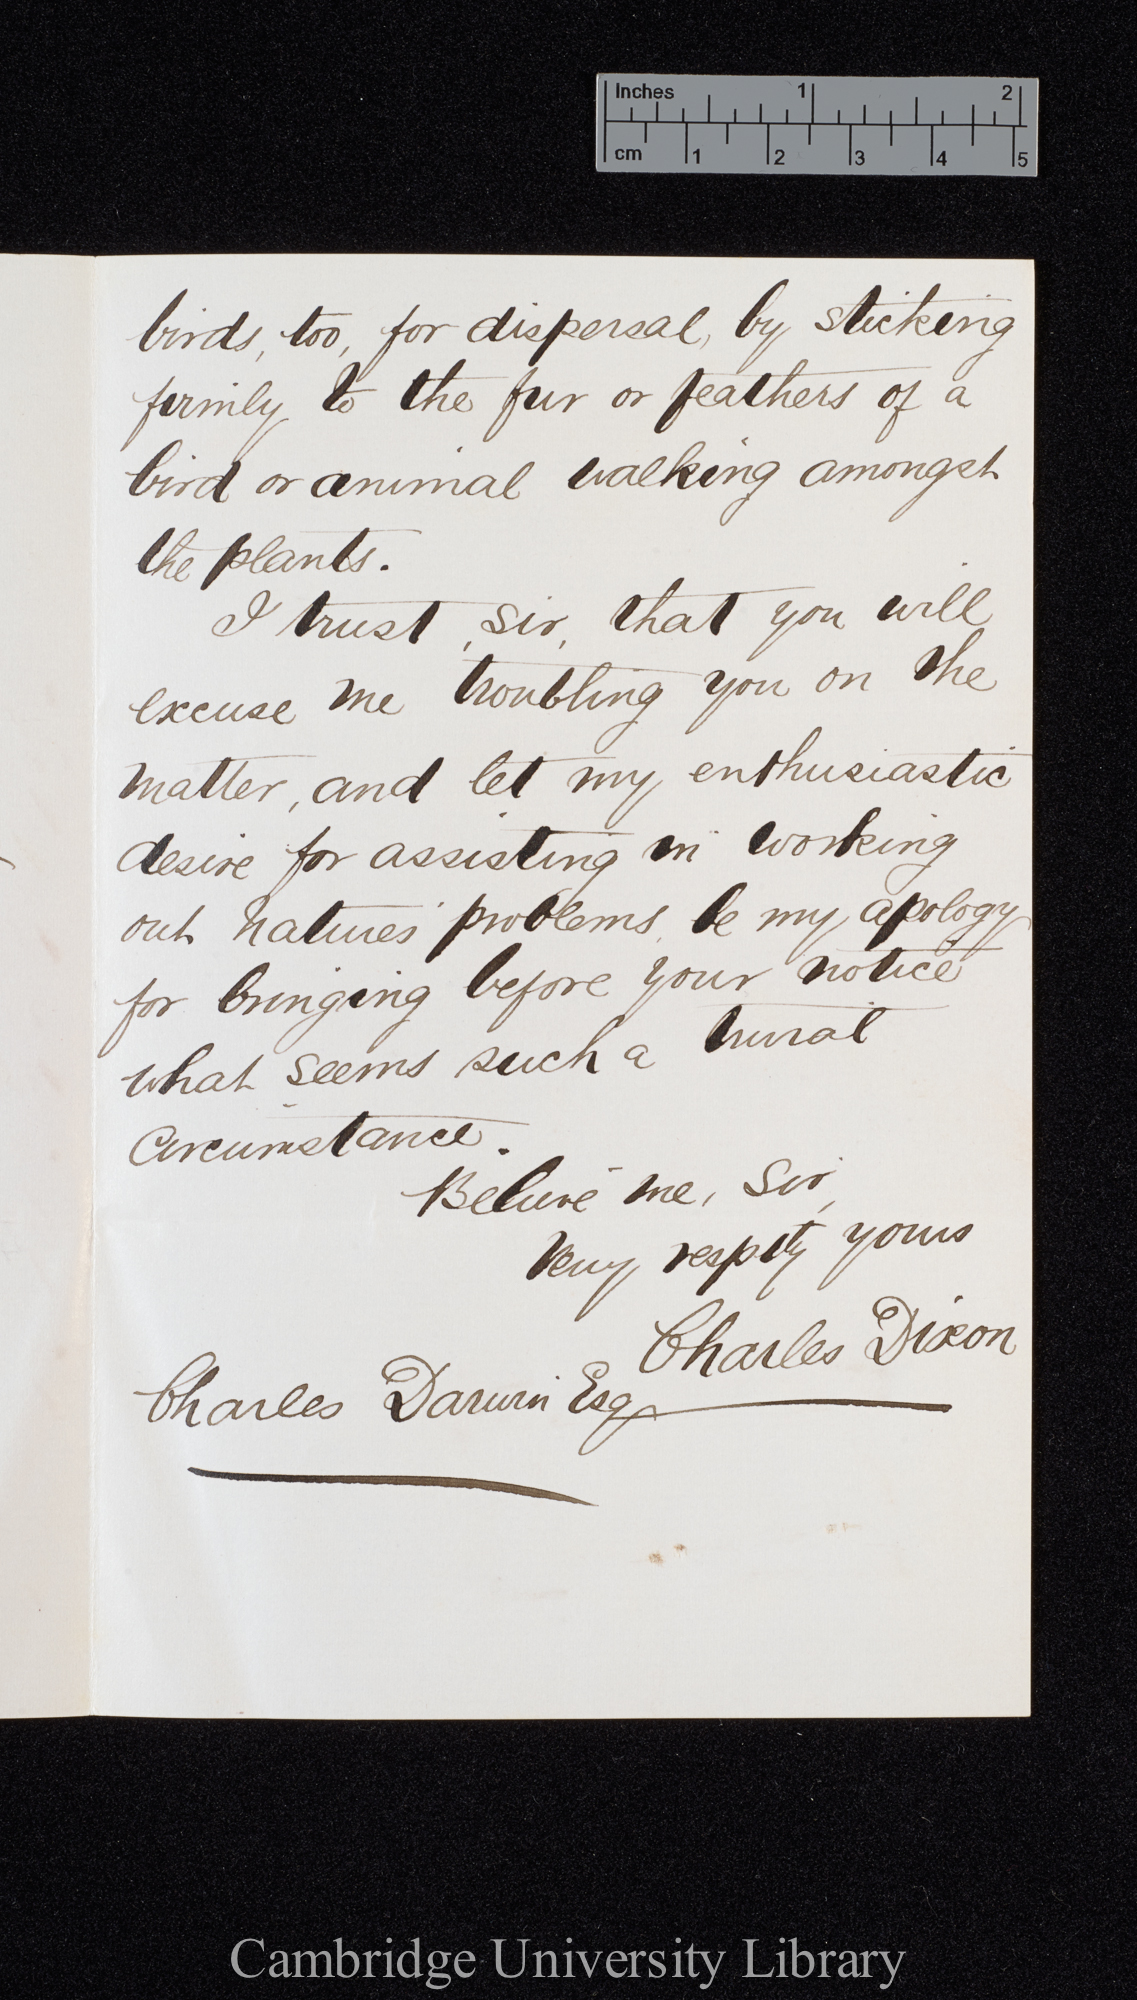 Inches 1 2
cm 1 2 3 4 5
birds, too, for dispersal, by sticking
firmly to the fur or feathers of a
bird or animal walking amongst
the plants.
I trust, Sir, that you will
excuse me troubling you on the
matter, and let my enthusiastic
desire for assisting in working
out Natures' problems, be my apology
for bringing before your notice
what seems such a trivial
Circumstance.
Believe me, Sir,
Very respty yours
Charles Dixon
Charles Darwin Esq
Cambridge University Library